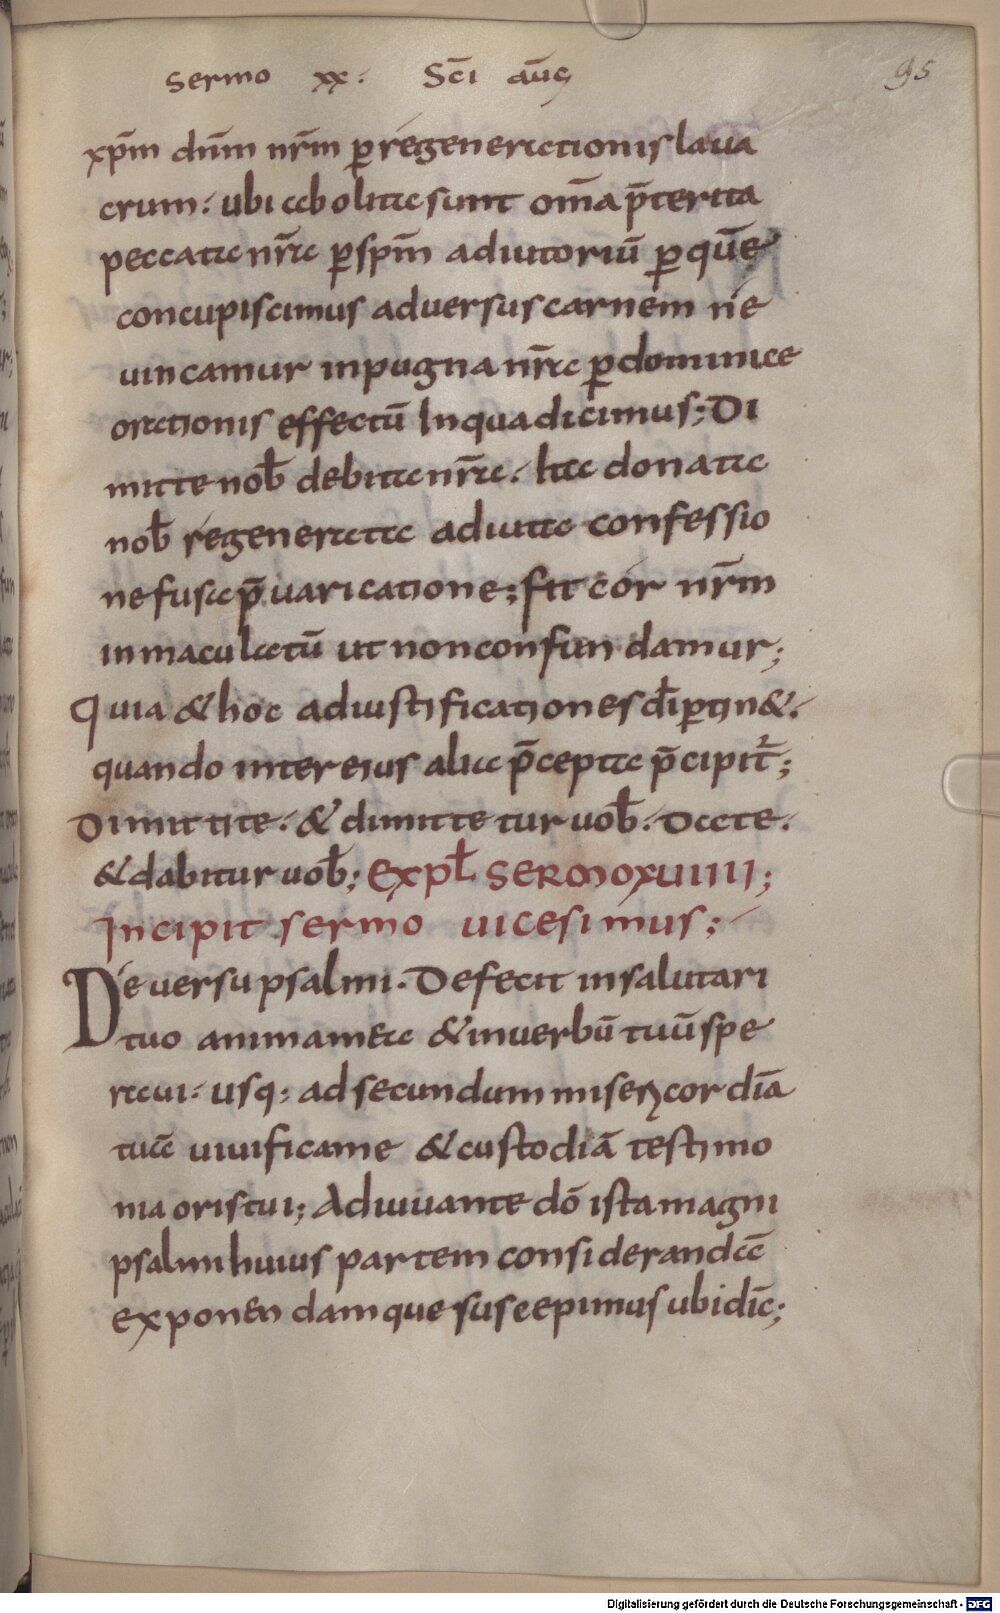 sermo xx. Sc̄i aūg 95
xp̄m dn̄m nr̄m ꝑ regenerationis lauā
crum. ubi abolita sunt om̄a p̄terita
peccata nr̄a ꝑ sp̄m adiutoriū ꝑ quē
concupiscimus aduersus carnem ne
uincamur in pugna nr̄a ꝑ dominice
orationis effectū In qua dicimus; Di
mitte nob̄ debita nr̄a. Ita donata
nob̄ regenerata adiuta confessio
ne fusa p̄uaricatione; fit cor nr̄m
inmaculatū ut non confundamur;
Quia & hoc ad iustificationes dī ꝑtin&.
quando inter eius alia p̄cepta p̄cipit᷑;
Dimittite. & dimittetur uob̄. Date.
& dabitur uob̄; Expl̄ SERMO XVIIII;
Incipit sermo uicesimus;
De uersu psalmi. Defecit in salutari
tuo anima mea & in uerbū tuū spe
raui. usq; ad secundum misericordiā
tuā uiuifica me & custodiā testimo
nia oris tui; Adiuuante dō ista magni
psalmi huius partem considerandā
exponendamque suscepimus ubi dīc;
Digitalisierung gefördert durch die Deutsche Forschungsgemeinschaft - DFG